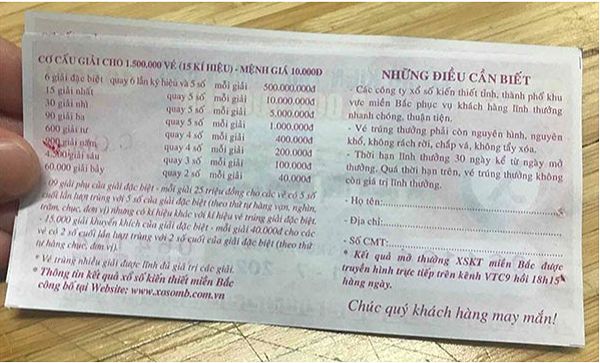 CƠ CẤU GIẢI CHO 1.500.000 VÉ (15 KÍ HIỆU) - MỆNH GIÁ 10.000Đ
6 giải đặc biệt quay 6 lần ký hiệu và 5 số mỗi giải 500.000.000đ
15 giải nhất quay 5 số mỗi giải 10.000.000đ
30 giải nhì quay 5 số mỗi giải 5.000.000đ
90 giải ba quay 5 số mỗi giải 1.000.000đ
600 giải tư quay 4 số mỗi giải 400.000đ
giải năm quay 4 số mỗi giải 200.000đ
4.500 giải sáu quay 3 số mỗi giải 100.000đ
60.000 giải bảy quay 2 số mỗi giải 40.000đ
09 giải phụ của giải đặc biệt - mỗi giải 25 triệu đồng cho các vé có 5 số
cuối lần lượt trùng với 5 số của giải đặc biệt (theo thứ tự hàng vạn, nghìn,
trăm, chục, đơn vị) nhưng có kí hiệu khác với kí hiệu vé trúng giải đặc biệt.
- 15.000 giải khuyến khích của giải đặc biệt - mỗi giải 40.000đ cho các
vé có 2 số cuối lần lượt trùng với 2 số cuối của giải đặc biệt (theo thứ
tự hàng chục, đơn vị).
* Vé trúng nhiều giải được lĩnh đủ giá trị các giải.
* Thông tin kết quả xổ số kiến thiết miền Bắc
công bố tại Website: www.xosomb.com.vn
NHỮNG ĐIỀU CẦN BIẾT
- Các công ty xổ số kiến thiết tỉnh, thành phố khu
vực miền Bắc phục vụ khách hàng lĩnh thưởng
nhanh chóng, thuận tiện.
- Vé trúng thưởng phải còn nguyên hình, nguyên
khổ, không rách rời, chắp vá, không tẩy xóa.
- Thời hạn lĩnh thưởng 30 ngày kể từ ngày mở
thưởng. Quá thời hạn trên, vé trúng thưởng không
còn giá trị lĩnh thưởng.
- Họ tên:
- Địa chỉ:
- Số CMT:
* Kết quả mở thưởng XSKT miền Bắc được
truyền hình trực tiếp trên kênh VTC9 hồi 18h15
hàng ngày.
Chúc quý khách hàng may mắn!